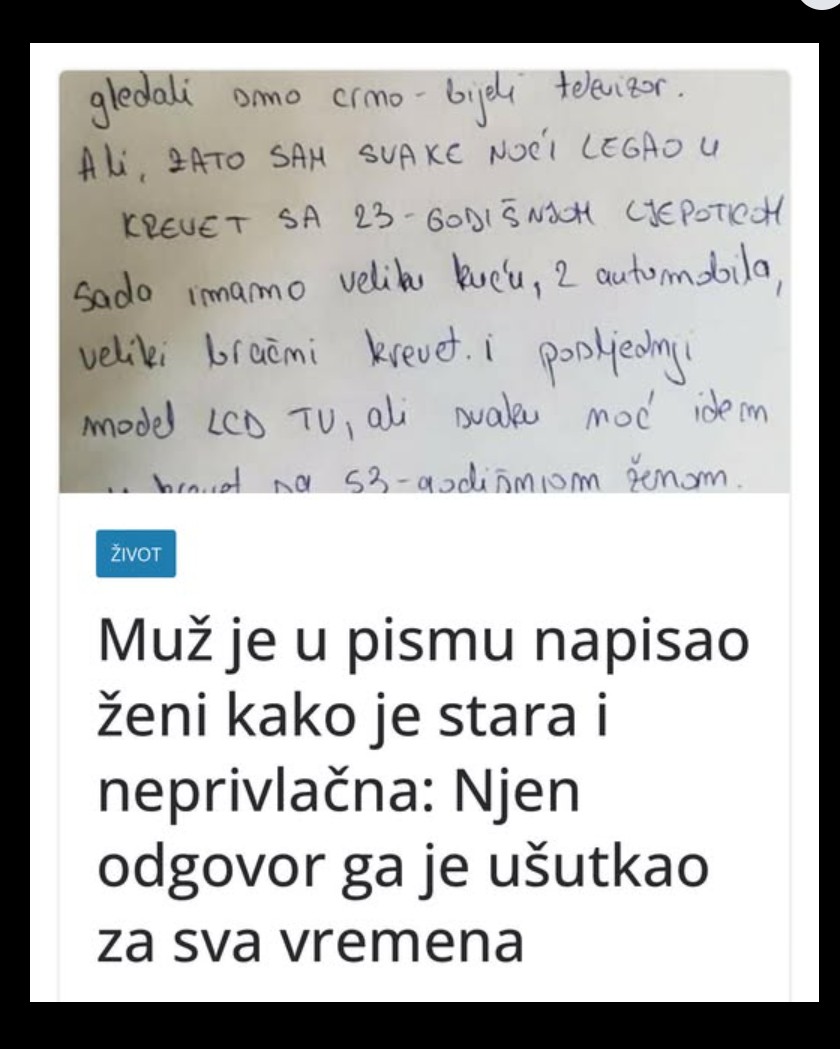 gledali smo crno - bijeli televizor.
Ali, ZATO SAM SVAKE NOĆI LEGAO U
KREVET SA 23 - GODIŠNJOM LJEPOTICOM
Sada imamo veliku kuću, 2 automobila,
veliki bračni krevet. i posljednji
model LCD TV, ali svaku noć idem
u krevet sa 53-godišnjom ženom.
ŽIVOT
Muž je u pismu napisao
ženi kako je stara i
neprivlačna: Njen
odgovor ga je ušutkao
za sva vremena